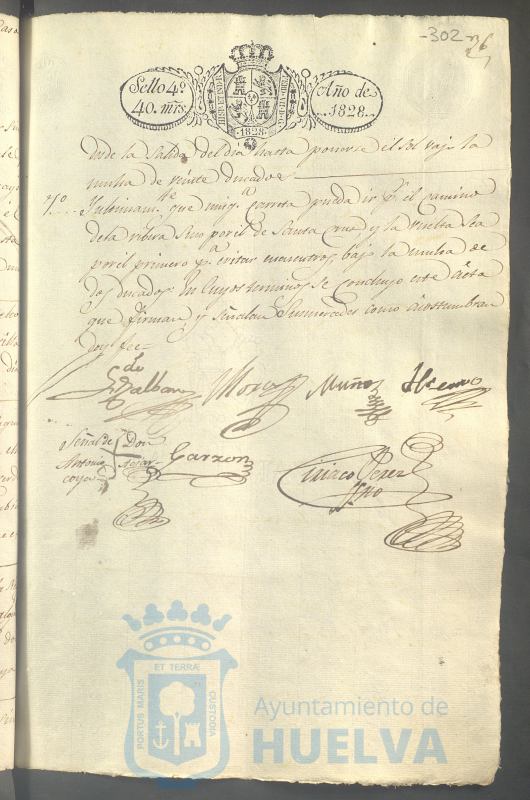 -302-
26
Sello 4º
40. mrs.
Año de
1828.
HISP. ET IND. R.
1828
desde la Salida del dia hasta ponerse el Sol vajo la
multa de veinte ducados
7º Ultimamte. que ning.a carreta pueda ir p.r el camino
de la ribera sino por el de Santa Cruz y la vuelta sea
por el primero p.a evitar encuentros, bajo la multa de
dos ducados. En cuyos terminos se concluyo este Acta
que firman, y señalan Sus mercedes como acostumbran
doy fee =
de
Mora
Muñoz
Señal de Don
Antonio
Garzon
Ciriaco Perez
ET TERRÆ
PORTUS MARIS
CUSTODIA
Ayuntamiento de
HUELVA